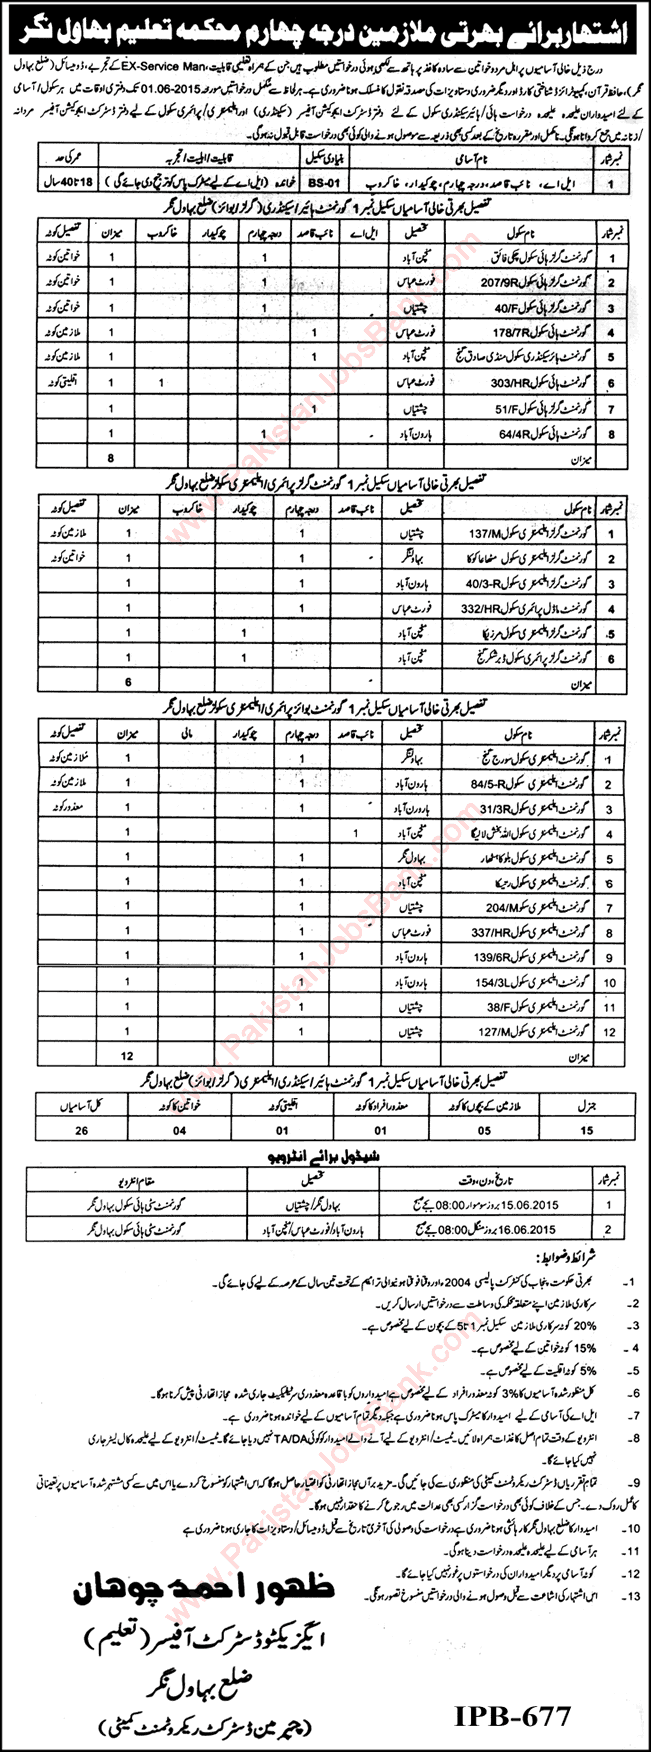 اشتہار برائے بھرتی ملازمین درجہ چہارم محکمہ تعلیم بہاول نگر
درج ذیل خالی آسامیوں پر اہل مرد و خواتین سے سادہ کاغذ پر ہاتھ سے لکھی ہوئی درخواستیں مطلوب ہیں جن کے ہمراہ تعلیمی قابلیت، EX-Service Man، کے تجربے، ڈومیسائل (ضلع بہاول
نگر) حافظ قرآن، کمپیوٹرائزڈ شناختی کارڈ اور دیگر ضروری دستاویزات کی مصدقہ نقول کا منسلک ہونا ضروری ہے۔ ہر لحاظ سے مکمل درخواستیں مورخہ 01.06-2015 تک دفتری اوقات میں ہر سکول/آسامی
کے لئے امیدواران علیحدہ علیحدہ درخواست ہائی/ہائیر سیکنڈری سکول کے لئے دفتر ڈسٹرکٹ ایجوکیشن آفیسر (سیکنڈری) اور ایلیمنٹری/پرائمری سکول کے لئے دفتر ڈسٹرکٹ ایجوکیشن آفیسر مردانہ
/زنانہ میں جمع کروانا ہوگی۔ نامکمل اور مقررہ تاریخ کے بعد کسی بھی ذریعہ سے موصول ہونے والی کوئی بھی درخواست قابل قبول نہ ہوگی۔
نمبر شمار نام آسامی بنیادی سکیل قابلیت/اہلیت/تجربہ عمر کی حد
1 ایل اے، نائب قاصد، درجہ چہارم، چوکیدار، خاکروب BS-01 خواندہ (ایل اے کے لیے میٹرک پاس کو ترجیح دی جائے گی) 18 تا 40 سال
تفصیل بھرتی خالی آسامیاں سکیل نمبر 1 گورنمنٹ ہائیر/سیکنڈری (گرلز/بوائز) ضلع بہاول نگر
نمبر شمار نام سکول تحصیل ایل اے نائب قاصد درجہ چہارم چوکیدار خاکروب میزان تفصیل کوٹہ
1 گورنمنٹ گرلز ہائی سکول چکی فائق منچن آباد 1 1 خواتین کوٹہ
2 گورنمنٹ گرلز ہائی سکول 207/9R فورٹ عباس 1 1 خواتین کوٹہ
3 گورنمنٹ گرلز ہائی سکول 40/F چشتیاں 1 1 خواتین کوٹہ
4 گورنمنٹ ہائی سکول 178/7R فورٹ عباس 1 1 ملازمین کوٹہ
5 گورنمنٹ ہائیر سیکنڈری سکول منڈی صادق گنج منچن آباد 1 1 ملازمین کوٹہ
6 گورنمنٹ ہائی سکول 303/HR فورٹ عباس 1 1 اقلیتی کوٹہ
7 گورنمنٹ گرلز ہائی سکول 51/F چشتیاں 1 1
8 گورنمنٹ ہائی سکول 64/4R ہارون آباد 1 1
میزان 8
تفصیل بھرتی خالی آسامیاں سکیل نمبر 1 گورنمنٹ گرلز پرائمری/ایلیمنٹری سکولز ضلع بہاول نگر
نمبر شمار نام سکول تحصیل نائب قاصد درجہ چہارم چوکیدار خاکروب میزان تفصیل کوٹہ
1 گورنمنٹ گرلز ایلیمنٹری سکول 137/M چشتیاں 1 1 ملازمین کوٹہ
2 گورنمنٹ گرلز ایلیمنٹری سکول کوکا بہاولنگر 1 1 خواتین کوٹہ
3 گورنمنٹ گرلز ایلیمنٹری سکول 40/3-R ہارون آباد 1 1
4 گورنمنٹ ماڈل پرائمری سکول 332/HR فورٹ عباس 1 1
5 گورنمنٹ گرلز ایلیمنٹری سکول منچن آباد 1 1
6 گورنمنٹ گرلز پرائمری سکول گنج منچن آباد 1 1
میزان 6
تفصیل بھرتی خالی آسامیاں سکیل نمبر 1 گورنمنٹ بوائز پرائمری/ایلیمنٹری سکولز ضلع بہاول نگر
نمبر شمار نام سکول تحصیل نائب قاصد درجہ چہارم چوکیدار مالی میزان تفصیل کوٹہ
1 گورنمنٹ ایلیمنٹری سکول سورج گنج بہاولنگر 1 1 ملازمین کوٹہ
2 گورنمنٹ ایلیمنٹری سکول 84/5-R ہارون آباد 1 1 ملازمین کوٹہ
3 گورنمنٹ ایلیمنٹری سکول 31/3R ہارون آباد 1 1 معذور کوٹہ
4 گورنمنٹ ایلیمنٹری سکول اللہ بخش لالیکا منچن آباد 1 1
5 گورنمنٹ ایلیمنٹری سکول بہاول نگر 1 1
6 گورنمنٹ ایلیمنٹری سکول منچن آباد 1 1
7 گورنمنٹ ایلیمنٹری سکول 204/M چشتیاں 1 1
8 گورنمنٹ ایلیمنٹری سکول 337/HR فورٹ عباس 1 1
9 گورنمنٹ ایلیمنٹری سکول 139/6R ہارون آباد 1 1
10 گورنمنٹ ایلیمنٹری سکول 154/3L ہارون آباد 1 1
11 گورنمنٹ ایلیمنٹری سکول 38/F چشتیاں 1 1
12 گورنمنٹ ایلیمنٹری سکول 127/M چشتیاں 1 1
میزان 12
تفصیل بھرتی خالی آسامیاں سکیل نمبر 1 گورنمنٹ ہائیر/سیکنڈری/ایلیمنٹری (گرلز/بوائز) ضلع بہاول نگر
جنرل ملازمین کے بچوں کا کوٹہ معذور افراد کا کوٹہ اقلیتی کوٹہ خواتین کا کوٹہ کل آسامیاں
15 05 01 01 04 26
شیڈول برائے انٹرویو
نمبر شمار تاریخ، دن، وقت تحصیل مقام انٹرویو
1 15.06.2015 بروز سوموار 08:00 بجے صبح بہاول نگر/چشتیاں گورنمنٹ سٹی ہائی سکول بہاول نگر
2 16.06.2015 بروز منگل 08:00 بجے صبح ہارون آباد/فورٹ عباس/منچن آباد گورنمنٹ سٹی ہائی سکول بہاول نگر
شرائط و ضوابط:
1- بھرتی حکومت پنجاب کی کنٹریکٹ پالیسی 2004ء اور وقتاً فوقتاً ہونیوالی ترامیم کے تحت تین سال کے عرصہ کے لیے کی جائے گی۔
2- سرکاری ملازمین اپنے متعلقہ محکمہ کی وساطت سے درخواستیں ارسال کریں۔
3- 20% کوٹہ سرکاری ملازمین سکیل نمبر 1 تا 5 کے بچوں کے لیے مخصوص ہے۔
4- 15% کوٹہ خواتین کے لیے مخصوص ہے۔
5- 5% کوٹہ اقلیت کے لیے مخصوص ہے۔
6- کل منظور شدہ آسامیوں کا 3% کوٹہ معذور افراد کے لیے مخصوص ہے امیدواروں کو باقاعدہ معذوری سرٹیفکیٹ جاری شدہ مجاز اتھارٹی پیش کرنا ہوگا۔
7- ایل اے کی آسامی کے لیے امیدوار کا میٹرک پاس ہونا ضروری ہے جبکہ دیگر تمام آسامیوں کے لیے خواندہ ہونا ضروری ہے۔
8- انٹرویو کے وقت تمام اصل کاغذات ہمراہ لائیں۔ ٹیسٹ/انٹرویو کے لیے آنے والے امیدوار کو کوئی TA/DA نہیں دیا جائے گا۔ ٹیسٹ/انٹرویو کے لیے علیحدہ کال لیٹر جاری
نہیں کیا جائے گا۔
9- تمام تقرریاں ڈسٹرکٹ ریکروٹمنٹ کمیٹی کی منظوری سے کی جائیں گی۔ مزید برآں مجاز اتھارٹی کو اختیار حاصل ہوگا کہ اس اشتہار کو منسوخ کر دے یا اس میں سے کسی مشتہر شدہ آسامیوں پر تعیناتی
کا عمل روک دے۔ جس کے خلاف کوئی بھی درخواست گزار کسی بھی عدالت میں رجوع کرنے کا حقدار نہیں ہوگا۔
10- امیدوار کا ضلع بہاول نگر کا رہائشی ہونا ضروری ہے درخواست کی وصولی کی آخری تاریخ سے قبل ڈومیسائل/دستاویزات کا جاری ہونا ضروری ہے
11- ہر آسامی کے لیے علیحدہ علیحدہ درخواست دینا ہوگی۔
12- کوٹہ آسامی پر دیگر امیدواران کی درخواستوں پر غور نہیں کیا جائے گا۔
13- اس اشتہار کی اشاعت سے قبل وصول ہونے والی درخواستیں منسوخ تصور ہونگی۔
ظہور احمد چوہان
ایگزیکٹو ڈسٹرکٹ آفیسر (تعلیم)
ضلع بہاول نگر
(چیئرمین ڈسٹرکٹ ریکروٹمنٹ کمیٹی)
IPB-677
www.PakistanJobsBank.com
www.PakistanJobsBank.com
www.PakistanJobsBank.com